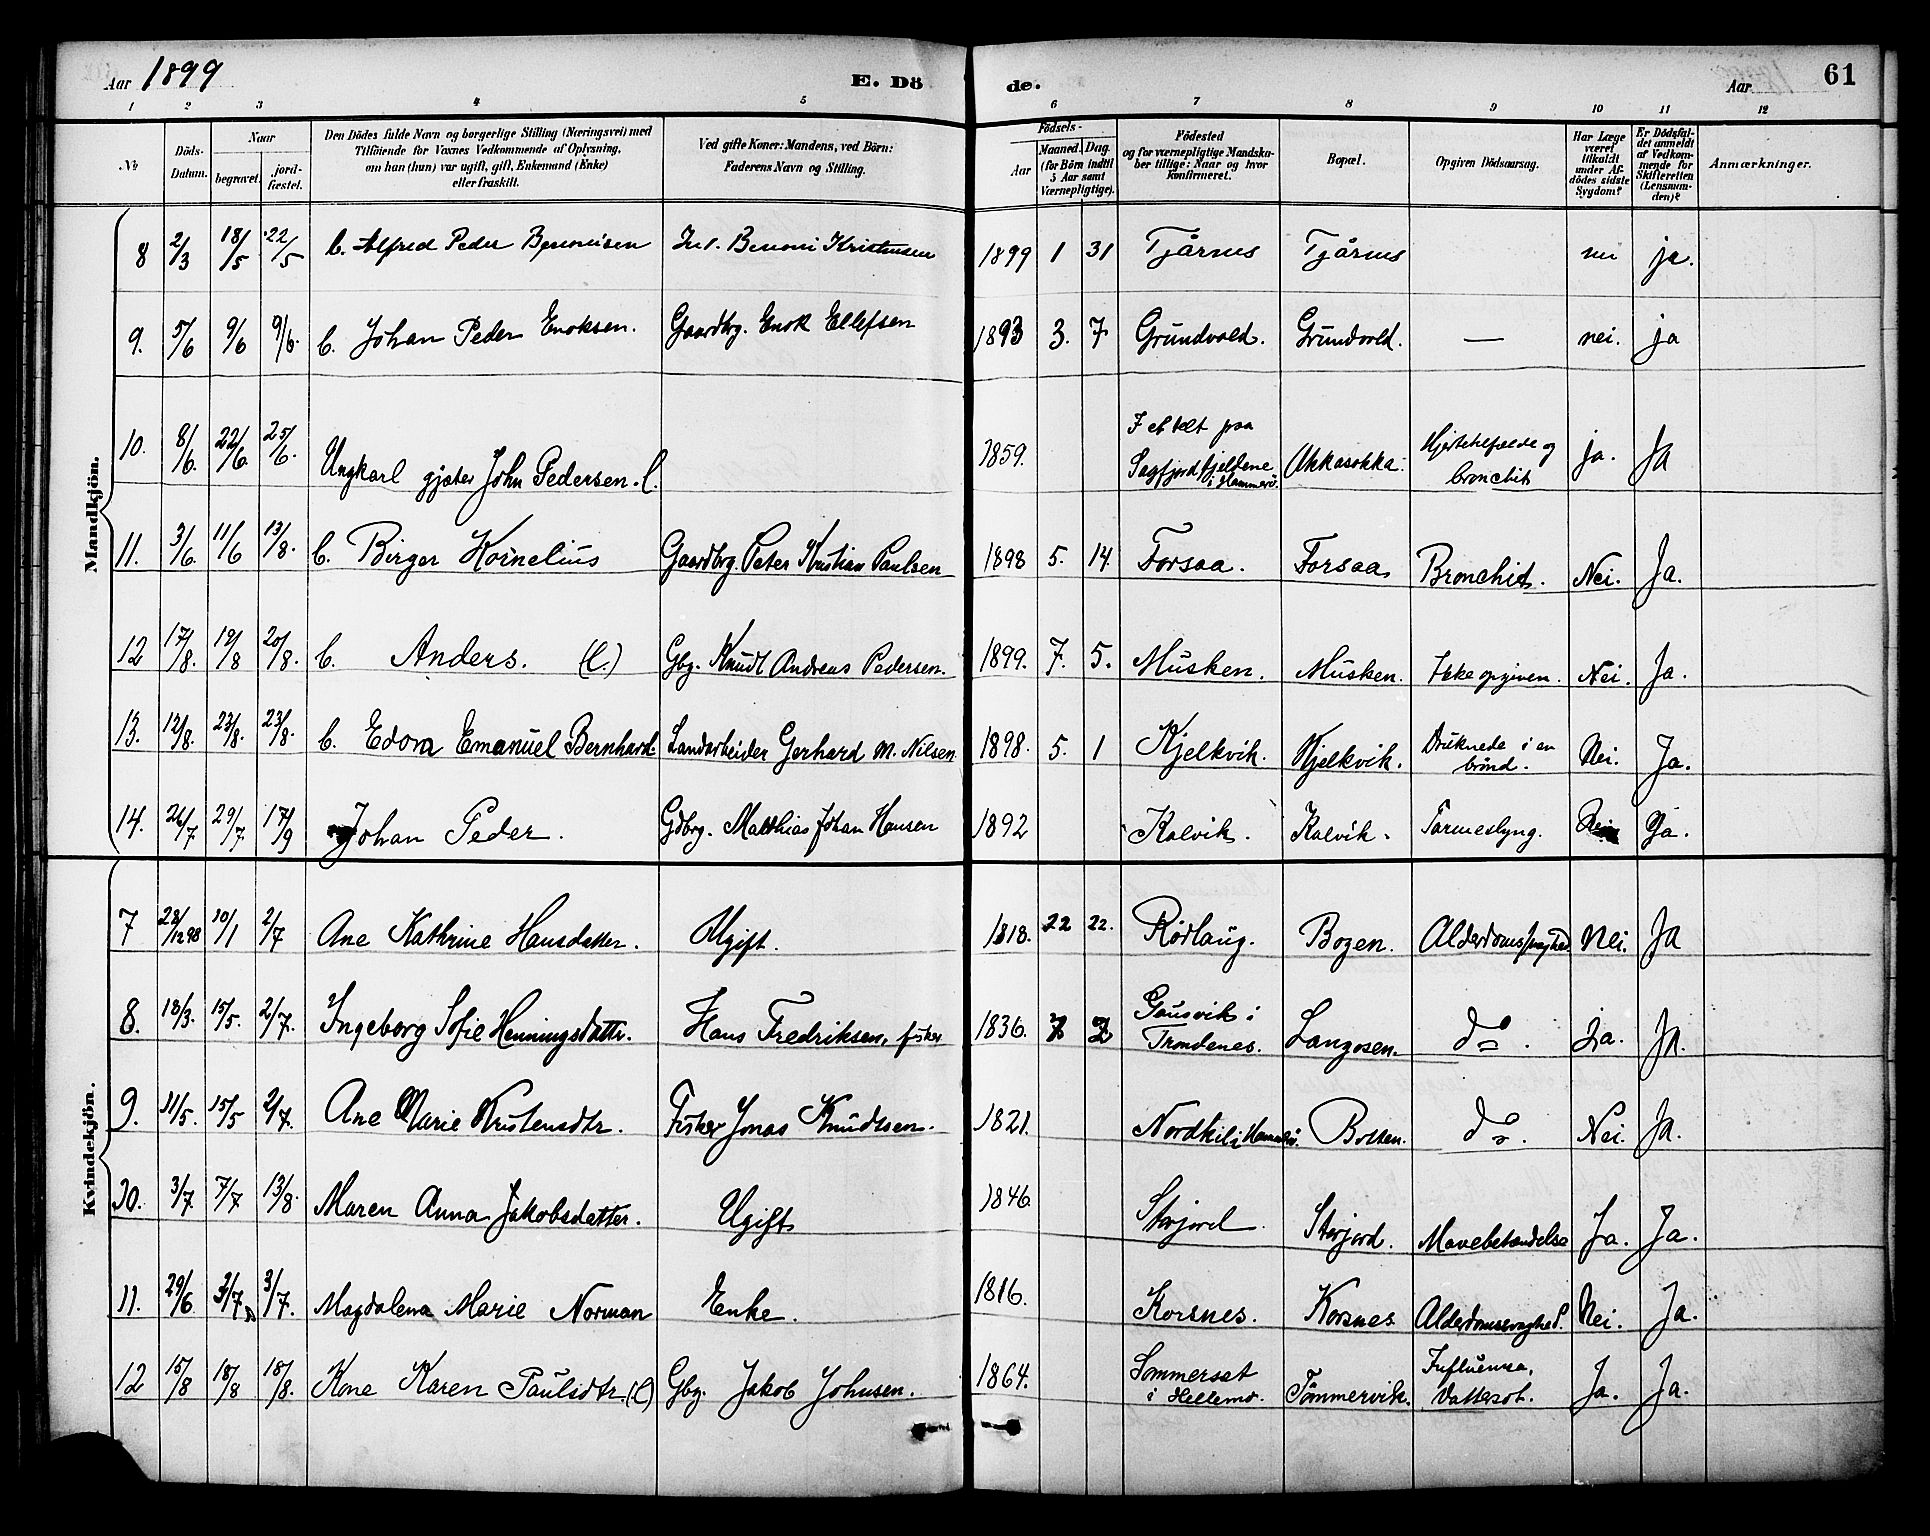 Aar 1899
E. Dö
de.
Aar
61
1 2 3 4 5 6 7 8 9 10 11 12
No
Döds-Datum.
Naar
begravet.
jord-fæstet.
Den Dödes fulde Navn og borgerlige Stilling (Næringsvei) med
Tilföiende for Voxnes Vedkommende af Oplysning,
om han (hun) var ugift, gift, Enkemand (Enke)
eller fraskilt.
Ved gifte Koner: Mandens, ved Börn:
Faderens Navn og Stilling.
Födsels-
Aar
Maaned. Dag.
(for Börn indtil
5 Aar samt
Værnepligtige).
Födested
og for værnepligtige Mandska-
ber tillige: Naar og hvor
konfirmeret.
Bopæl.
Opgiven Dödsaarsag.
Har Læge
været
tilkaldt
under Af-
dödes sidste
Sygdom?
Er Dödsfal-
det anmeldt
af Vedkom-
mende for
Skifteretten
(Lensman-
den)?
Anmærkninger.
Mandkjön.
8 2/3 18/5 22/5 b. Alfred Peder Benonisen Ind. Benoni Kristensen 1899 1 31 Tjårnes Tjårnes nei ja.
9. 5/6 9/6 9/6. b. Johan Peder Enoksen. Gaardbrg. Enok Ellefsen 1893 3. 7 Grundvold. Grundvold. — nei. ja
10. 8/6. 22/6. 25/6. Ungkarl gjæter John Pedersen. l. 1859. I et telt paa
Sagfjordfjeldene
i Hammerö. Akkasokka. Hjertetilfælde og
bronchit ja. Ja
11. 3/6. 11/6 13/8. b. Birger Kornelius Gaardbrg. Peter Kristian Paulsen 1898 5. 14. Forsaa. Forsaa Bronchit. Nei. Ja.
12 17/8. 19/8 20/8. b. Anders. (l.) Gbg. Knudt Andreas Pedersen. 1899. 7. 5. Musken. Musken. Ikke opgiven. Nei. Ja.
13. 12/8. 23/8. 23/8. b. Edora Emanuel Bernhard. Landarbeider Gerhard M. Nilsen. 1898. 5. 1 Kjelkvik. Kjelkvik. Druknede i en
brönd. Nei. Ja.
14. 26/7 29/7 17/9 Johan Peder. Gdbrg. Matthias Johan Hansen 1892 Kalvik. Kalvik. Tarmeslyng. Nei Ja.
Kvindekjön.
7 28/12 98 10/1 2/7 Ane Kathrine Hansdatter. Ugift. 1818. 22 22. Rörlaug. Bogen. Alderdomssvaghed Nei. Ja
8. 18/3. 15/5. 2/7. Ingeborg Sofie Henningsdatter. Hans Fredriksen, fisker 1836. 7 2 Gausvik i
Trondenes. Langosen. do. Ja. Ja.
9. 11/5. 15/5 2/7. Ane Marie Kristensdtr. Fisker Jonas Knudtsen. 1821. Nordkil i Hamerö. Botten. do. Nei. Ja.
10. 3/7. 7/7 13/8. Maren Anna Jakobsdatter. Ugift 1846. Storjord. Storjord. Mavebetændelse Ja. Ja.
11. 29/6 3/7 3/7. Magdalena Marie Norman Enke. 1816. Korsnes. Korsnes Alderdomssvaghed. Nei. Ja.
12 15/8 18/8 18/8. Kone Karen Paulsdtr. (l) Gbg. Jakob Johnsen. 1864. Sommerset
i Hellemo. Tömmervik. Influensa,
Vattersot. Ja. Ja.